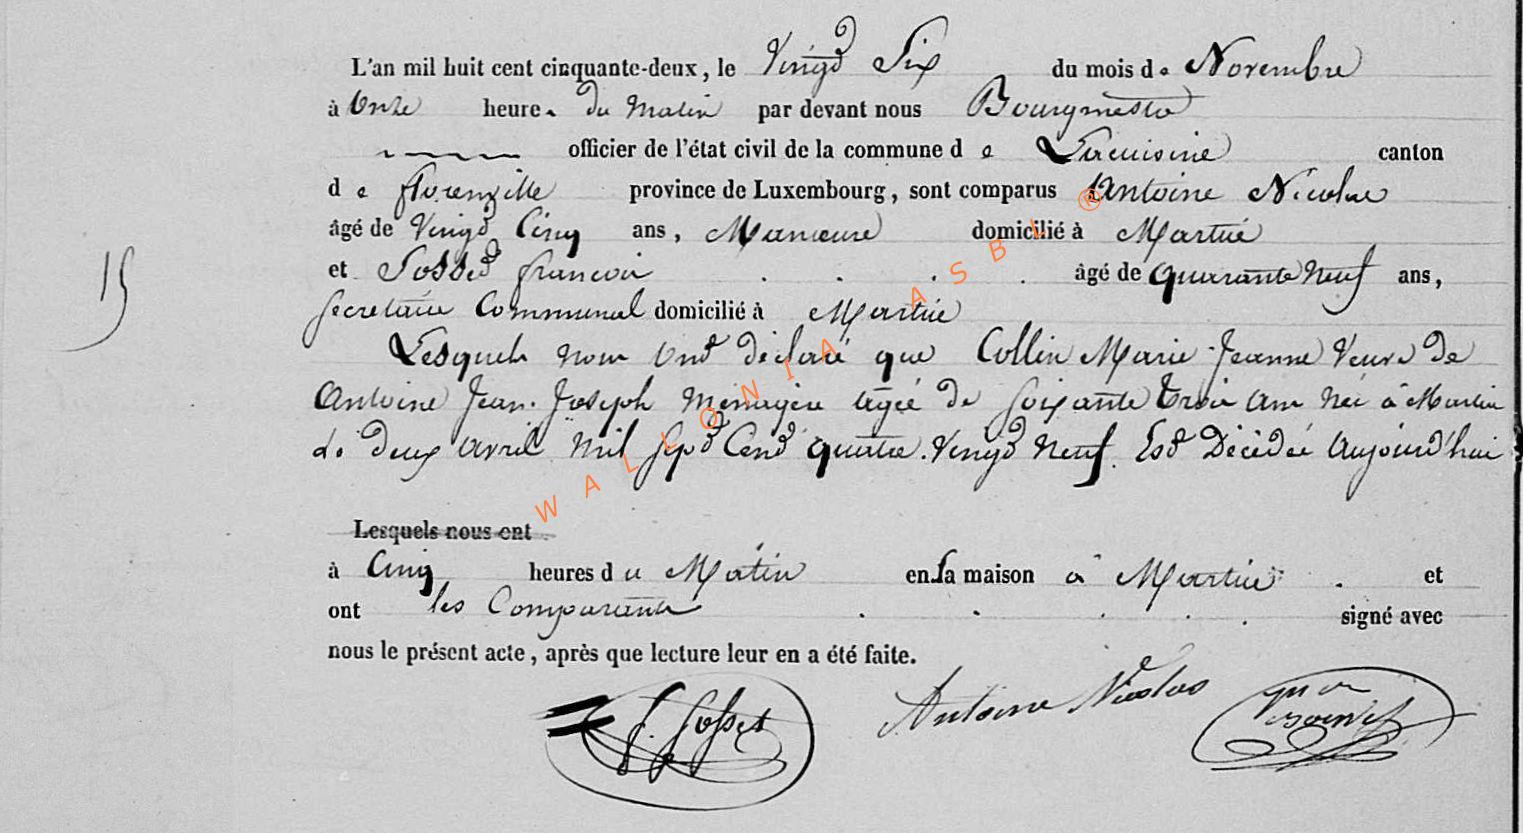 L'an mil huit cent cinquante-deux, le Vingt Six du mois de Novembre
à Onze heure. du Matin par devant nous Bourgmestre
officier de l'état civil de la commune de Lacuisine canton
de florenville province de Luxembourg, sont comparus Antoine Nicolas
âgé de Vingt Cinq ans, Manœuvre domicilié à Martué
et Gosset françois âgé de quarante Neuf ans,
Secretaire Communal domicilié à Martué
Lesquels nous Ont déclaré que Collin Marie-Jeanne Veuve De
Antoine Jean-Joseph Ménagère agée de soixante trois ans Née à Martué
le deux avril Mil Sept Cent quatre-Vingt Neuf Est Décédée aujourd'hui
15
Lesquels nous ont
à Cinq heures du Matin en sa maison à Martué et
ont les Comparants signé avec
nous le présent acte, après que lecture leur en a été faite.
f. Gosset Antoine Nicolas
WALLONIA ASBL ®